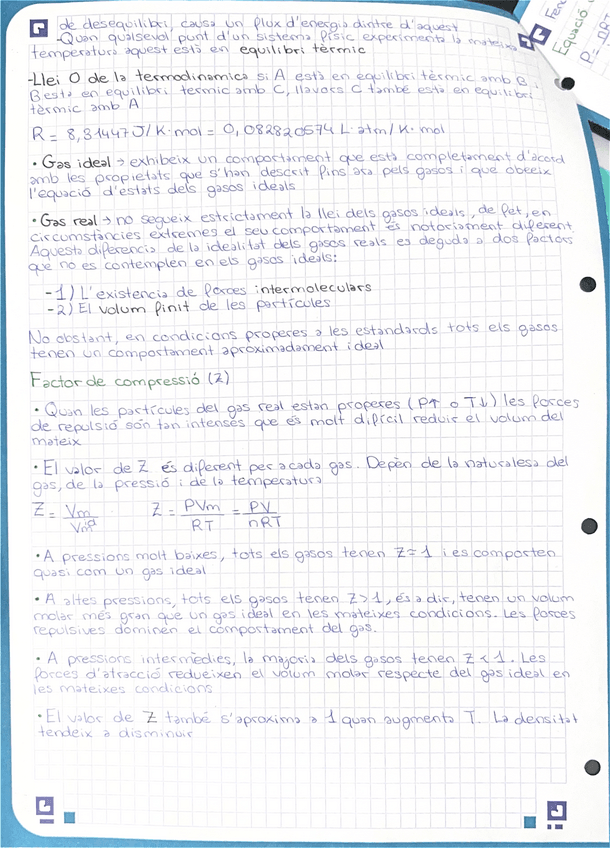 de desequilibri, causa un flux d'energia dintre d'aquest
-Quan qualsevol punt d'un sistema físic experimenta la mateixa
temperatura aquest està en equilibri tèrmic
-Llei 0 de la termodinamica si A està en equilibri tèrmic amb B i
B està en equilibri termic amb C, llavors C també està en equilibri
tèrmic amb A
R = 8,31447 J/K·mol = 0,082820574 L·atm/K·mol
• Gas ideal → exhibeix un comportament que està completament d'acord
amb les propietats que s'han descrit fins ara pels gasos i que obeeix
l'equació d'estats dels gasos ideals
• Gas real → no segueix estrictament la llei dels gasos ideals, de fet, en
circumstàncies extremes el seu comportament és notoriament diferent
Aquesta diferencia de la idealitat dels gasos reals es deguda a dos factors
que no es contemplen en els gasos ideals:
-1) L'existencia de forces intermoleculars
-2) El volum finit de les partícules
No obstant, en condicions properes a les estandards tots els gasos
tenen un comportament aproximadament ideal
Factor de compressió (Z)
• Quan les partícules del gas real estan properes (P↑ o T↓) les forces
de repulsió són tan intenses que és molt difícil reduir el volum del
mateix
• El valor de Z és diferent per a cada gas. Depèn de la naturalesa del
gas, de la pressió i de la temperatura
Z = Vm / Vm^id Z = PVm / RT = PV / nRT
• A pressions molt baixes, tots els gasos tenen Z≈1 i es comporten
quasi com un gas ideal
• A altes pressions, tots els gasos tenen Z>1, és a dir, tenen un volum
molar més gran que un gas ideal en les mateixes condicions. Les forces
repulsives dominen el comportament del gas.
• A pressions intermèdies, la majoria dels gasos tenen Z<1. Les
forces d'atracció redueixen el volum molar respecte del gas ideal en
les mateixes condicions
• El valor de Z també s'aproxima a 1 quan augmenta T. La densitat
tendeix a disminuir
Equació